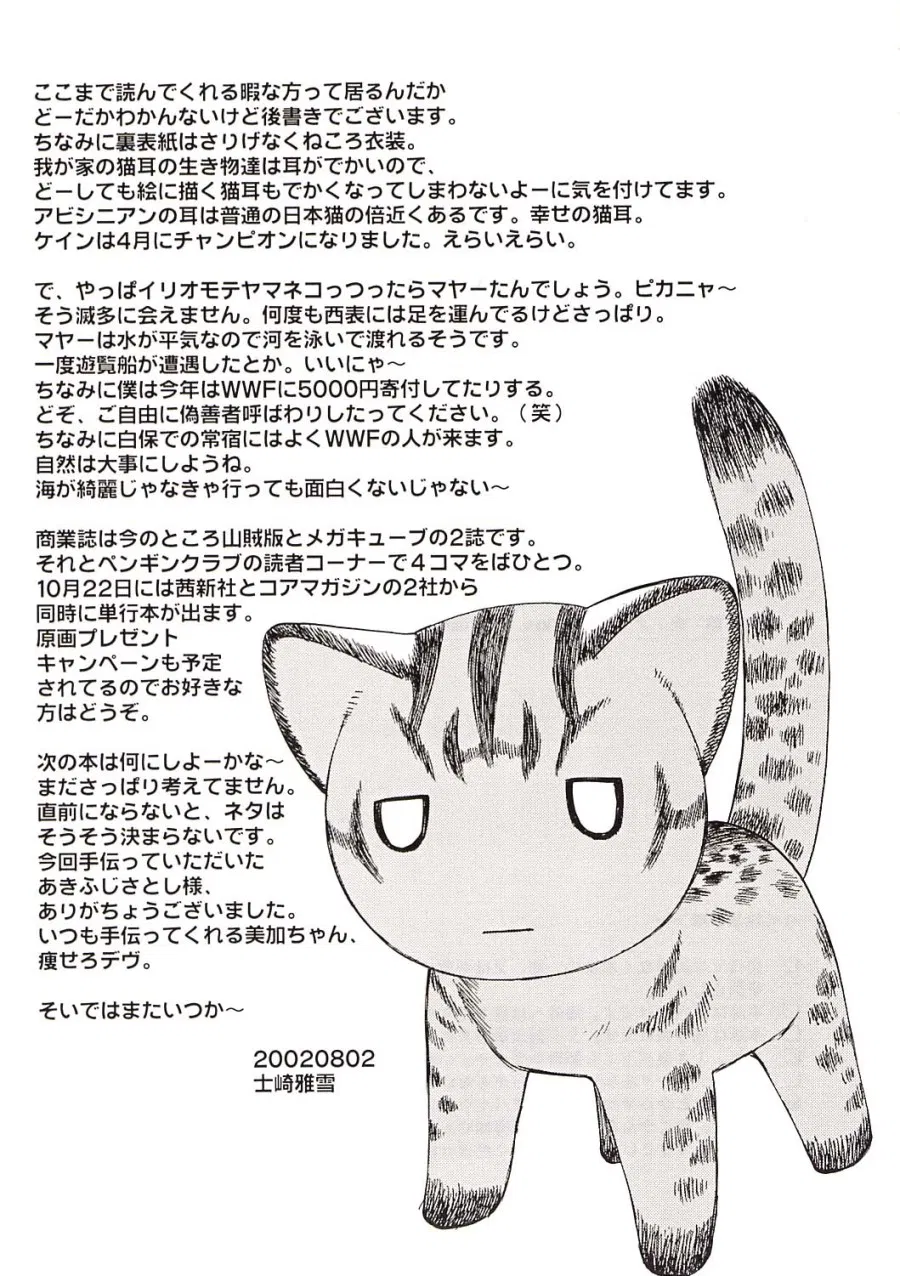 ここまで読んでくれる暇な方って居るんだか
どーだかわかんないけど後書きでございます。
ちなみに裏表紙はさりげなくねころ衣装。
我が家の猫耳の生き物達は耳がでかいので、
どーしても絵に描く猫耳もでかくなってしまわないよーに気を付けてます。
アビシニアンの耳は普通の日本猫の倍近くあるです。幸せの猫耳。
ケインは4月にチャンピオンになりました。えらいえらい。
で、やっぱイリオモテヤマネコっつったらマヤーたんでしょう。ピカニャ〜
そう滅多に会えません。何度も西表には足を運んでるけどさっぱり。
マヤーは水が平気なので河を泳いで渡れるそうです。
一度遊覧船が遭遇したとか。いいにゃ〜
ちなみに僕は今年はWWFに5000円寄付してたりする。
どぞ、ご自由に偽善者呼ばわりしたってください。（笑）
ちなみに白保での常宿にはよくWWFの人が来ます。
自然は大事にしようね。
海が綺麗じゃなきゃ行っても面白くないじゃない〜
商業誌は今のところ山賊版とメガキューブの2誌です。
それとペンギンクラブの読者コーナーで４コマをばひとつ。
10月22日には茜新社とコアマガジンの2社から
同時に単行本が出ます。
原画プレゼント
キャンペーンも予定
されてるのでお好きな
方はどうぞ。
次の本は何にしよーかな〜
まださっぱり考えてません。
直前にならないと、ネタは
そうそう決まらないです。
今回手伝っていただいた
あきふじさとし様、
ありがちょうございました。
いつも手伝ってくれる美加ちゃん、
痩せろデヴ。
そいではまたいつか〜
20020802
士崎雅雪